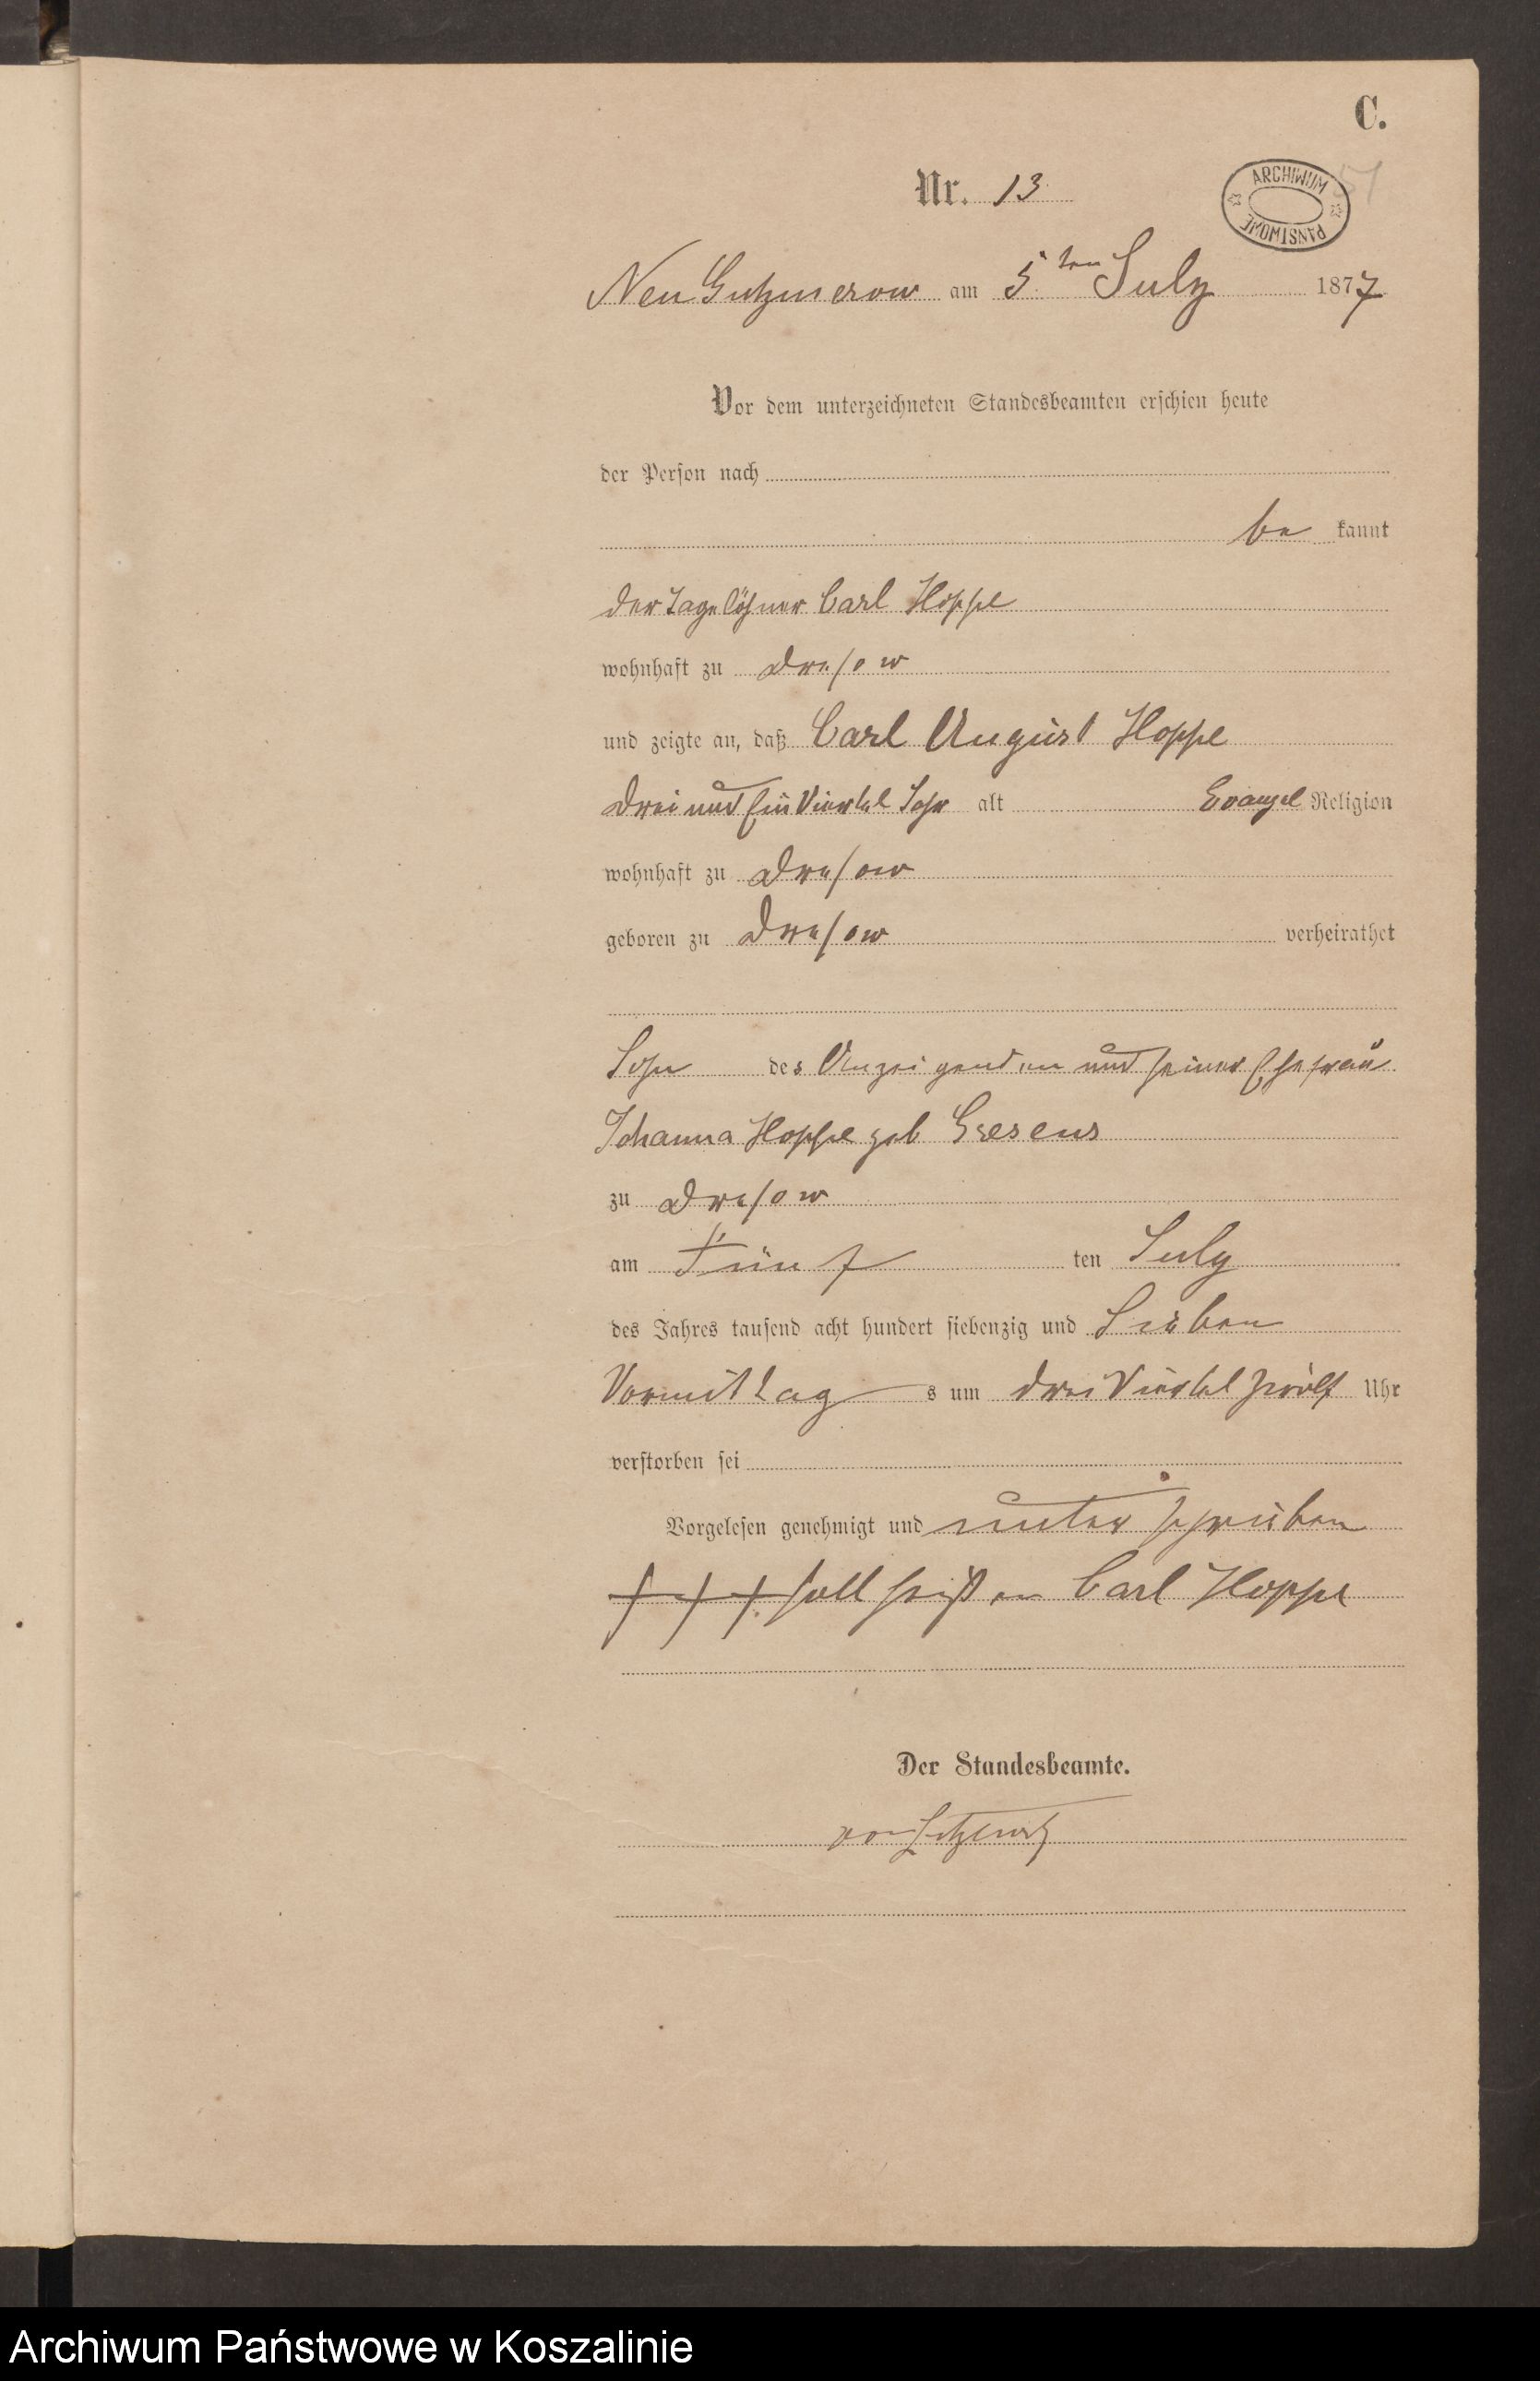 C.
Nr. 13
ARCHIWUM PAŃSTWOWE
51
Neu Gutzmerow am 5ten July 1877
Vor dem unterzeichneten Standesbeamten erschien heute
der Person nach
be kannt
der Tagelöhner Carl Hoppe
wohnhaft zu Dresow
und zeigte an, daß Carl August Hoppe
Drei und Ein Viertel Jahr alt Evangel Religion
wohnhaft zu Dresow
geboren zu Dresow verheirathet
Sohn des Anzeigenden und seiner Ehefrau
Johanna Hoppe geb
zu Dresow
am Fünf ten July
des Jahres tausend acht hundert siebenzig und Sieben
Vormittag s um drei Viertel zwölf Uhr
verstorben sei
Vorgelesen genehmigt und unterschrieben
+ + + soll heißen Carl Hoppe
Der Standesbeamte.
von
Archiwum Państwowe w Koszalinie